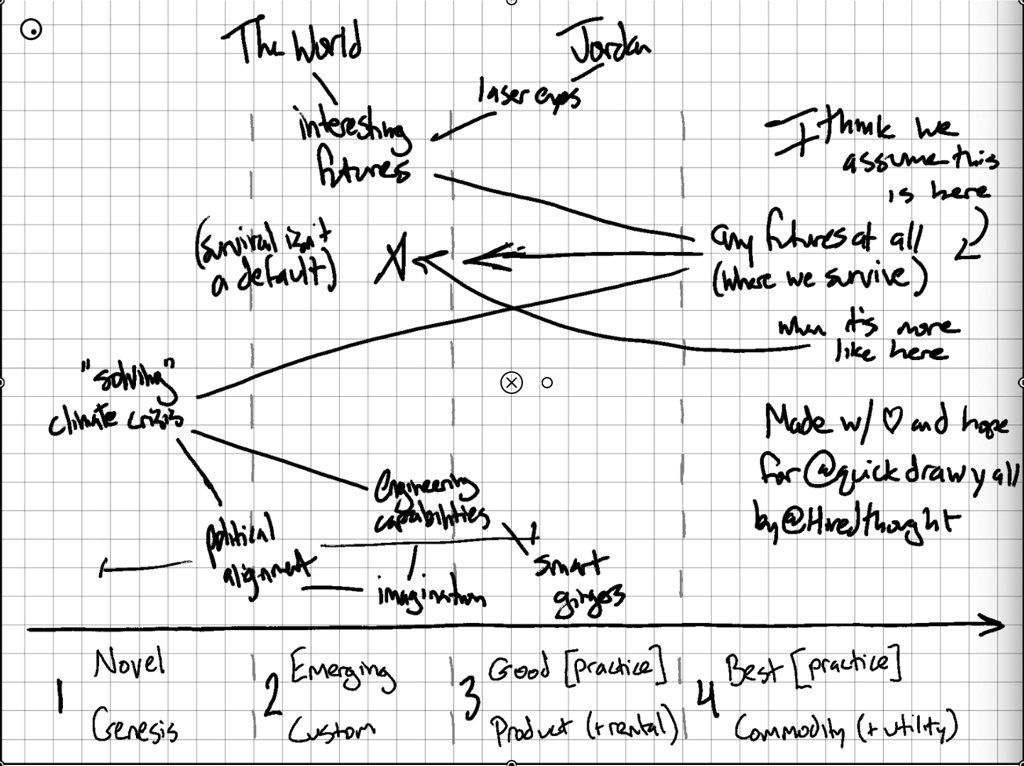 The World
Jordan
laser eyes
interesting
futures
I think we
assume this
is here
(survival isn't
a default)
any futures at all
(where we survive)
when it's more
like here
"solving"
climate crisis
Made w/ ♡ and hope
for @quickdrawyall
by @Hiredthought
Engineering
capabilities
political
alignment
imagination
smart
gingers
1 Novel
Genesis
2 Emerging
Custom
3 Good [practice]
Product (+rental)
4 Best [practice]
Commodity (+utility)